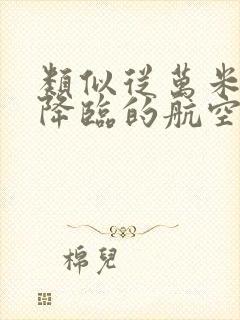 類似從萬米
降臨的航空
棉兒